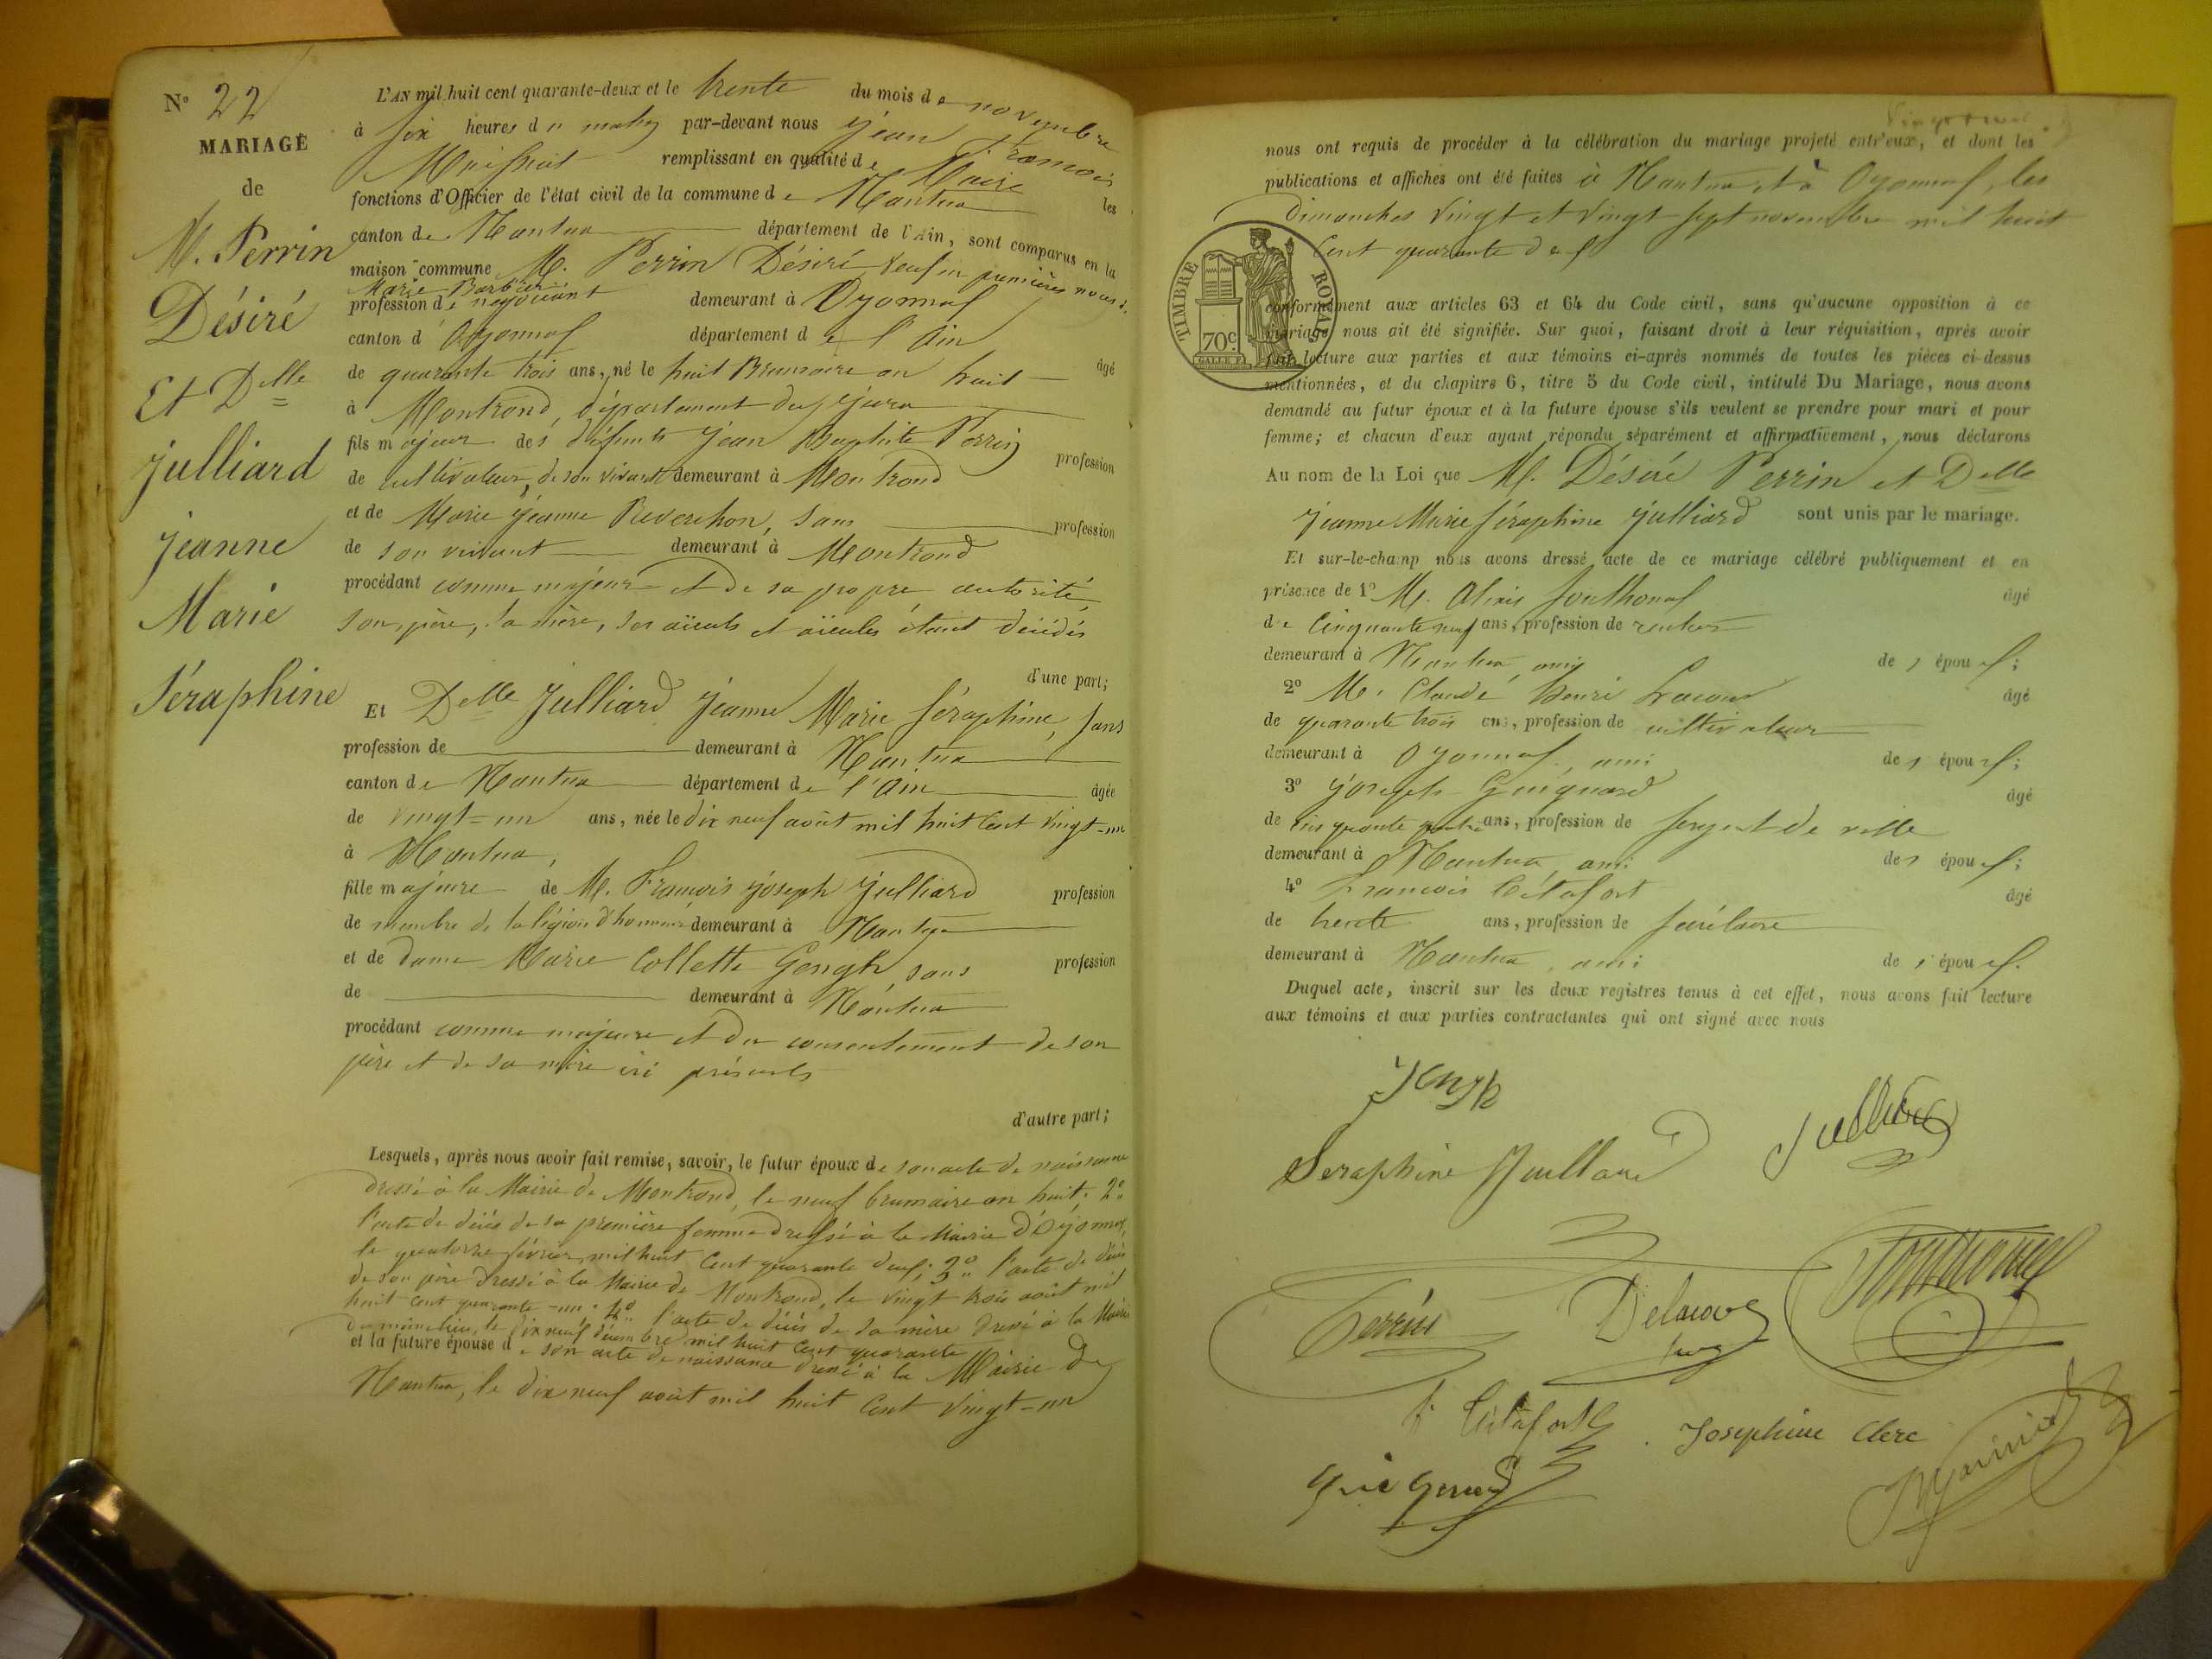 N° 22
MARIAGE
de
M. Perrin
Désiré
Et Delle
Julliard
Jeanne
Marie
Séraphine
L'AN mil huit cent quarante-deux et le trente du mois de novembre
à six heures du matin par-devant nous Jean François
remplissant en qualité de Maire les
fonctions d'Officier de l'état civil de la commune de Nantua
canton de Nantua département de l'Ain, sont comparus en la
maison commune M. Perrin Désiré veuf en premières noces de
Marie Barbier
profession de négociant demeurant à Oyonnax
canton d'Oyonnax département de l'Ain âgé
de quarante trois ans, né le huit Brumaire an huit
à Montrond, département du Jura
fils majeur des défunts Jean Baptiste Perrin profession
de cultivateur, de son vivant demeurant à Montrond
et de Marie Jeanne Reverchon, sans profession
de son vivant demeurant à Montrond
procédant comme majeur et de sa propre autorité,
son père, sa mère, ses aïeuls et aïeules étant décédés
d'une part;
Et Delle Julliard Jeanne Marie Séraphine, sans
profession de demeurant à Nantua
canton de Nantua département de l'Ain âgée
de vingt-un ans, née le dix neuf août mil huit cent vingt-un
à Nantua,
fille majeure de M. François Joseph Julliard profession
de membre de la légion d'honneur demeurant à Nantua
et de dame Marie Collette Gengk sans profession
de demeurant à Nantua
procédant comme majeure et du consentement de son
père et de sa mère ici présents
d'autre part;
Lesquels, après nous avoir fait remise, savoir, le futur époux de son acte de naissance
dressé à la Mairie de Montrond, le neuf brumaire an huit. 2°
l'acte de décès de sa première femme dressé à la Mairie d'Oyonnax,
le quatorze février mil huit cent quarante deux; 3° l'acte de décès
de son père dressé à la Mairie de Montrond, le vingt trois août mil
huit cent quarante-un. 4° l'acte de décès de sa mère dressé à la Mairie
du même lieu, le dix neuf décembre mil huit cent quarante
et la future épouse de son acte de naissance dressé à la Mairie de
Nantua, le dix neuf août mil huit cent vingt-un
nous ont requis de procéder à la célébration du mariage projeté entr'eux, et dont les
publications et affiches ont été faites à Nantua et à Oyonnax, les
Dimanches vingt et vingt sept novembre mil huit
cent quarante deux
TIMBRE ROYAL
70c.
conformément aux articles 63 et 64 du Code civil, sans qu'aucune opposition à ce
mariage nous ait été signifiée. Sur quoi, faisant droit à leur réquisition, après avoir
fait lecture aux parties et aux témoins ci-après nommés de toutes les pièces ci-dessus
mentionnées, et du chapitre 6, titre 5 du Code civil, intitulé Du Mariage, nous avons
demandé au futur époux et à la future épouse s'ils veulent se prendre pour mari et pour
femme; et chacun d'eux ayant répondu séparément et affirmativement, nous déclarons
Au nom de la Loi que M. Désiré Perrin et Delle
Jeanne Marie Séraphine Julliard sont unis par le mariage.
Et sur-le-champ nous avons dressé acte de ce mariage célébré publiquement et en
présence de 1° M. Alexis Jouthonex âgé
de cinquante neuf ans, profession de rentier
demeurant à Nantua, ami de s époux;
2° M. Claude Henri âgé
de quarante trois ans, profession de cultivateur
demeurant à Oyonnax, ami de s époux;
3° Joseph Guignard âgé
de cinquante quatre ans, profession de sergent de ville
demeurant à Nantua, ami de s époux;
4° François Cétafort âgé
de trente ans, profession de secrétaire
demeurant à Nantua, ami de s époux.
Duquel acte, inscrit sur les deux registres tenus à cet effet, nous avons fait lecture
aux témoins et aux parties contractantes qui ont signé avec nous
Séraphine Juillard
Julliard
Perrin
Delacour
f. Cétafort
Josephine Clerc
Guignard